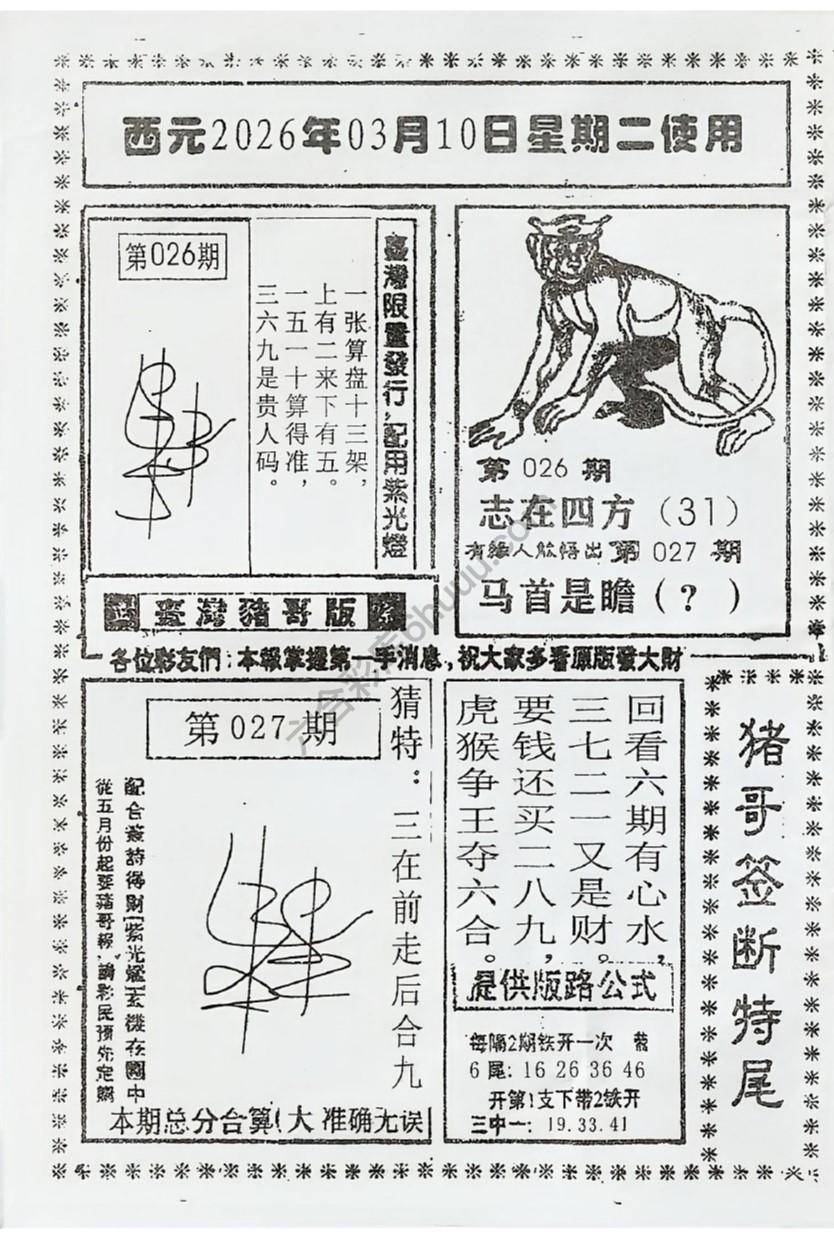 西元2026年03月10日星期二使用
第026期
一张算盘十三架，
上有二来下有五。
一五一十算得准，
三六九是贵人码。
臺灣限量發行，配用紫光燈
臺灣豬哥版
第026期
志在四方（31）
有緣人能悟出第027期
马首是瞻（？）
各位彩友們：本報掌握第一手消息，祝大家多看原版發大財
第027期
猜特：三在前走后合九
配合叢詩得財【紫光燈】玄機在圖中
從五月份起要豬哥報，請彩民預先定購
本期总分合算！大 准确无误
回看六期有心水，
三七二一又是财。
要钱还买二八九，
虎猴争王夺六合。
提供版路公式
每隔2期铁开一次
6尾：16 26 36 46
开第1支下带2铁开
三中一：19.33.41
猪哥签断特尾
六合彩库6huuu.com